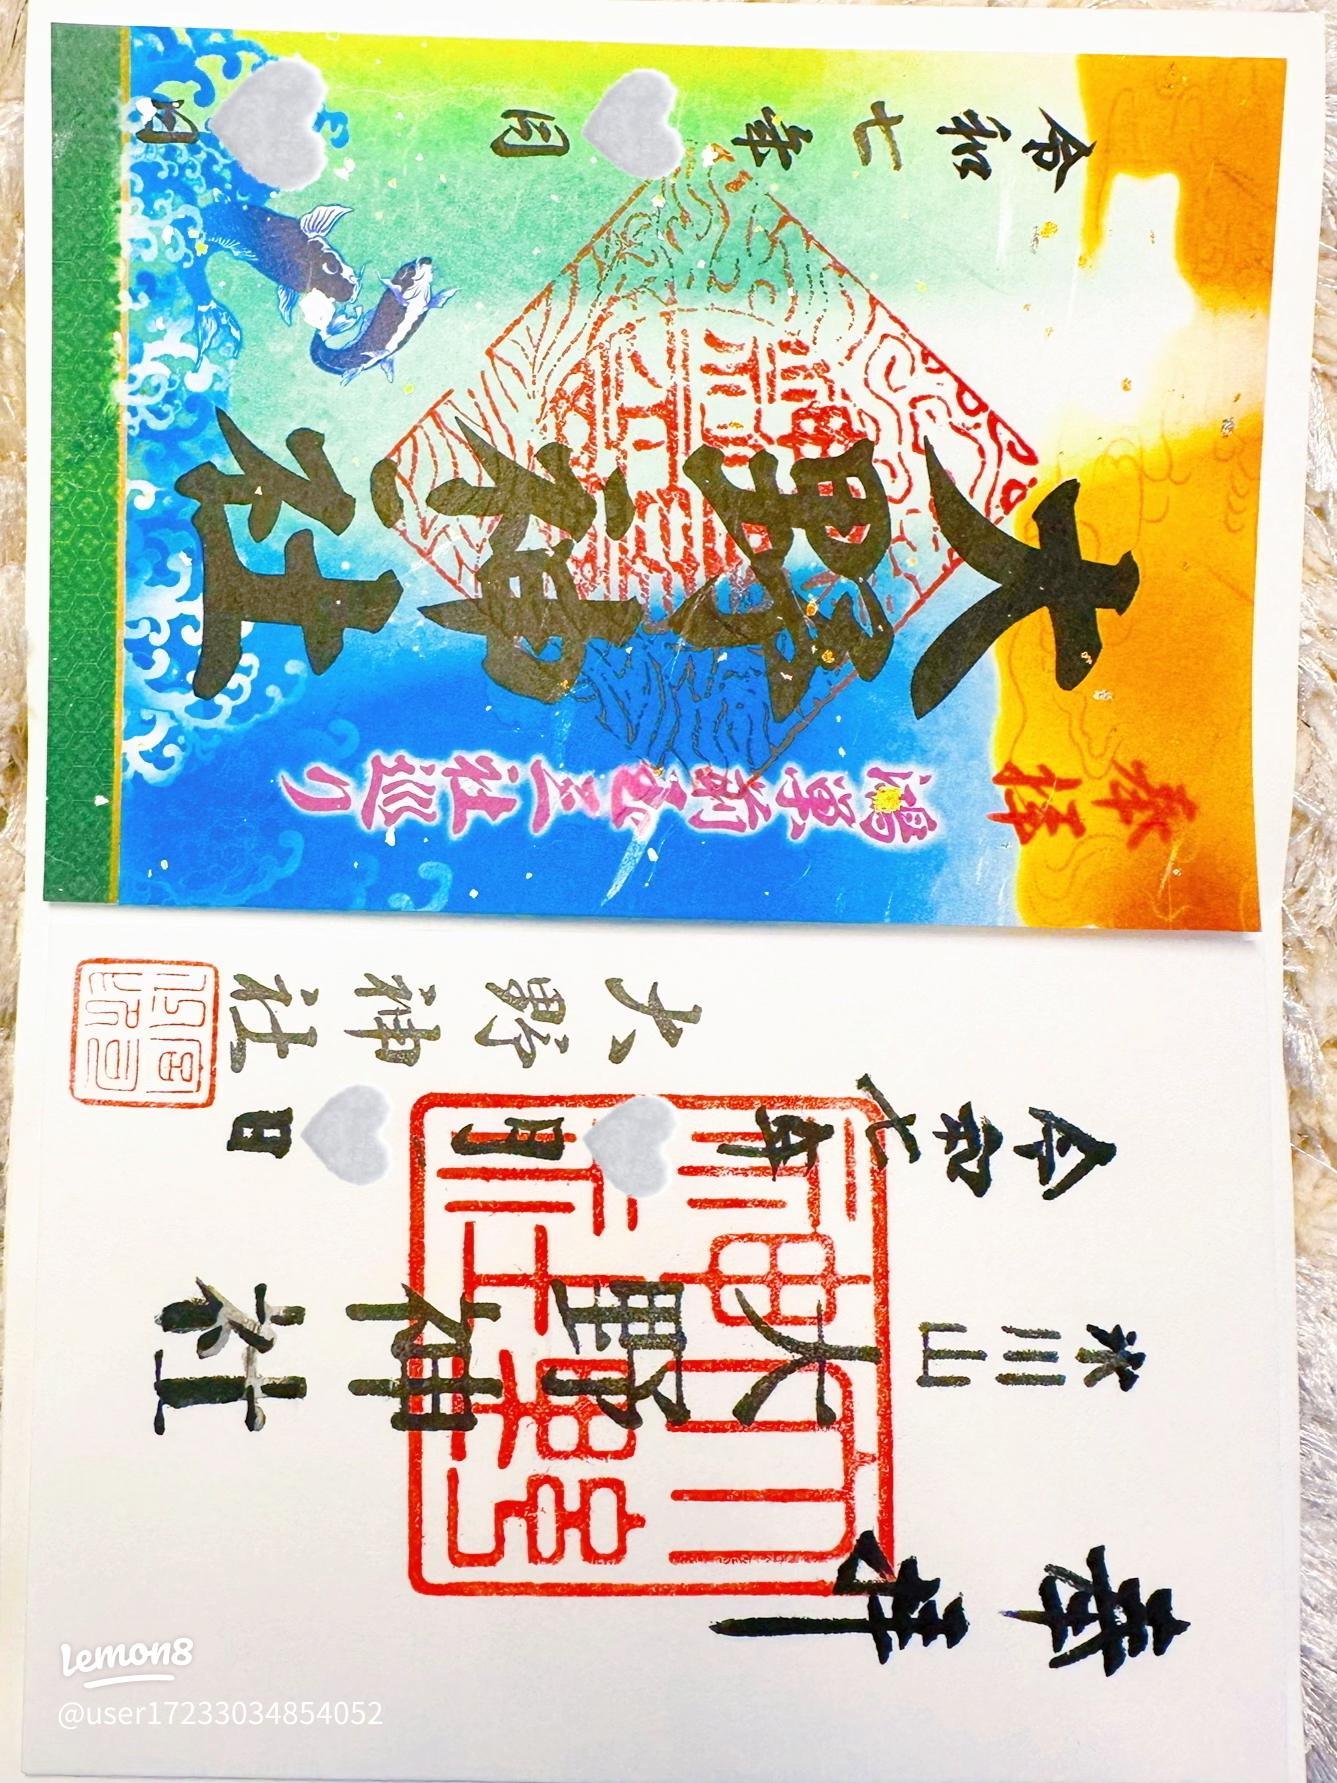 奉拝
三社巡り
大野神社
令和七年 月 日
奉拝
氷川山
大野神社
令和七年 月 日
大野神社
lemon8
@user17233034854052